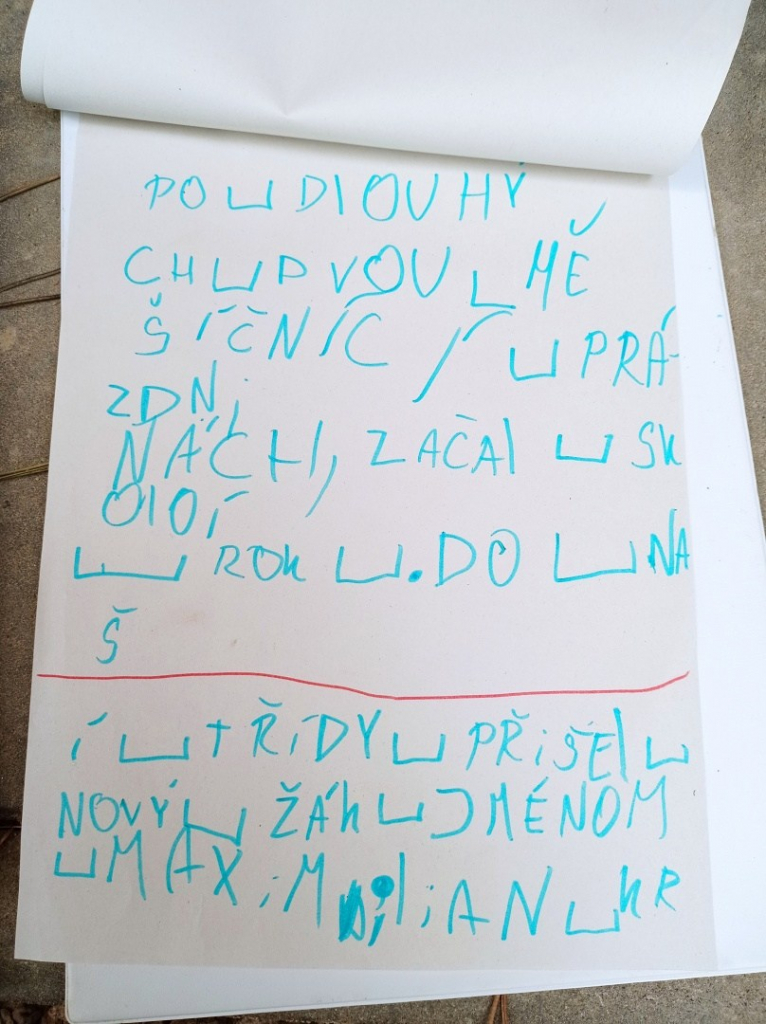 PO␣DlOUHÝ
CH␣DVOU␣MĚ
ŠÍČNÍC / ␣PRÁ-
ZDNi
NÁCH, ZAČAl␣SK
OlOÍ
␣ROK␣.DO␣NA
Š
Í␣tŘíDY␣PŘiŠEl␣
NOVÝ␣ŽÁK␣JMÉNOM
␣MAXiMiliAN␣KR